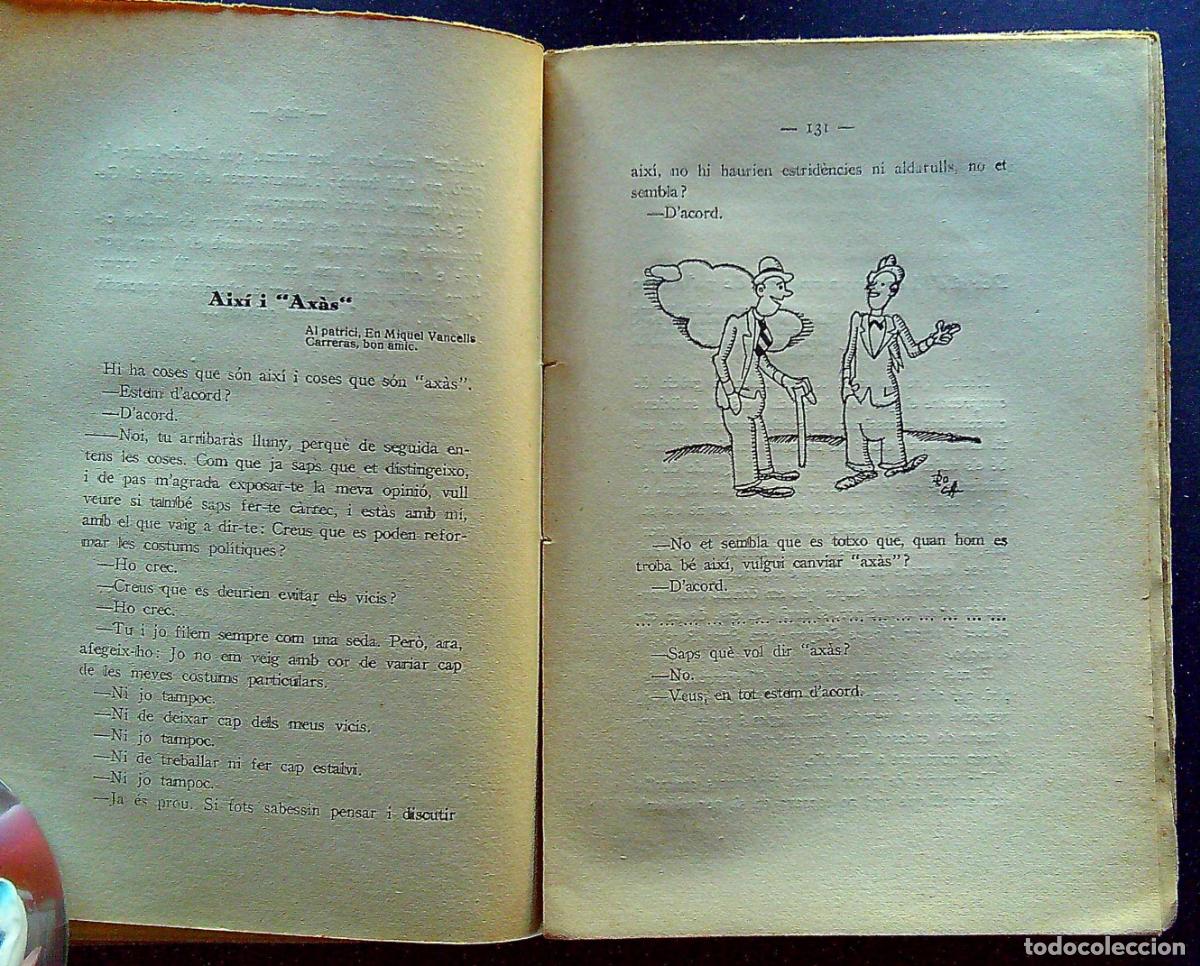 Així i "Axàs"
Al patrici, En Miquel Vancells
Carreras, bon amic.
Hi ha coses que són així i coses que són "axàs".
—Estem d'acord?
—D'acord.
—Noi, tu arribaràs lluny, perquè de seguida en-
tens les coses. Com que ja saps que et distingeixo,
i de pas m'agrada exposar-te la meva opinió, vull
veure si també saps fer-te càrrec, i estàs amb mi,
amb el que vaig a dir-te: Creus que es poden refor-
mar les costums polítiques?
—Ho crec.
—Creus que es deurien evitar els vicis?
—Ho crec.
—Tu i jo filem sempre com una seda. Però, ara,
afegeix-ho: Jo no em veig amb cor de variar cap
de les meves costums particulars.
—Ni jo tampoc.
—Ni de deixar cap dels meus vicis.
—Ni jo tampoc.
—Ni de treballar ni fer cap estalvi.
—Ni jo tampoc.
—Ja és prou. Si tots sabessin pensar i discutir
— 131 —
així, no hi haurien estridències ni aldarulls, no et
sembla?
—D'acord.
ROCA
—No et sembla que es totxo que, quan hom es
troba bé així, vulgui canviar "axàs"?
—D'acord.
... ... ... ... ... ... ... ... ... ... ... ... ... ... ...
—Saps què vol dir "axàs?
—No.
—Veus, en tot estem d'acord.
todocoleccion